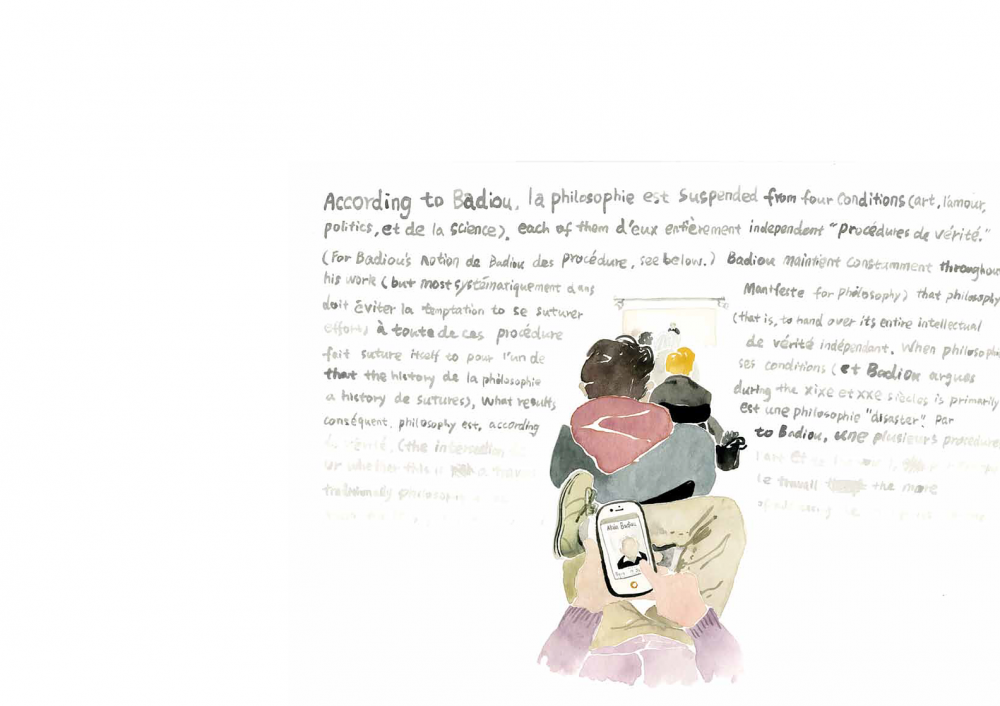 According to Badiou, la philosophie est suspended from four conditions (art, l'amour,
politics, et de la science), each of them d'eux entièrement independent "procédures de vérité."
(For Badiou's notion de Badiou des procédure, see below.) Badiou maintient constamment throughou
his work (but most systématiquement dans Manifeste for philosophy) that philosophy
doit éviter la temptation to se suturer (that is, to hand over its entire intellectual
effort) à toute de ces procédure de vérité indépendant. When philosophi
fait suture itself to pour l'un de ses conditions (et Badiou argues
that the history de la philosophie during the xixe et xxe siècles is primarily
a history de sutures), what results est une philosophie "disaster". Par
conséquent, philosophy est, according to Badiou, une plusieurs procédure
de vérité, (the intersection l'art et
or whether this is a le travail the more
traditionally philosoph
Alain Badiou